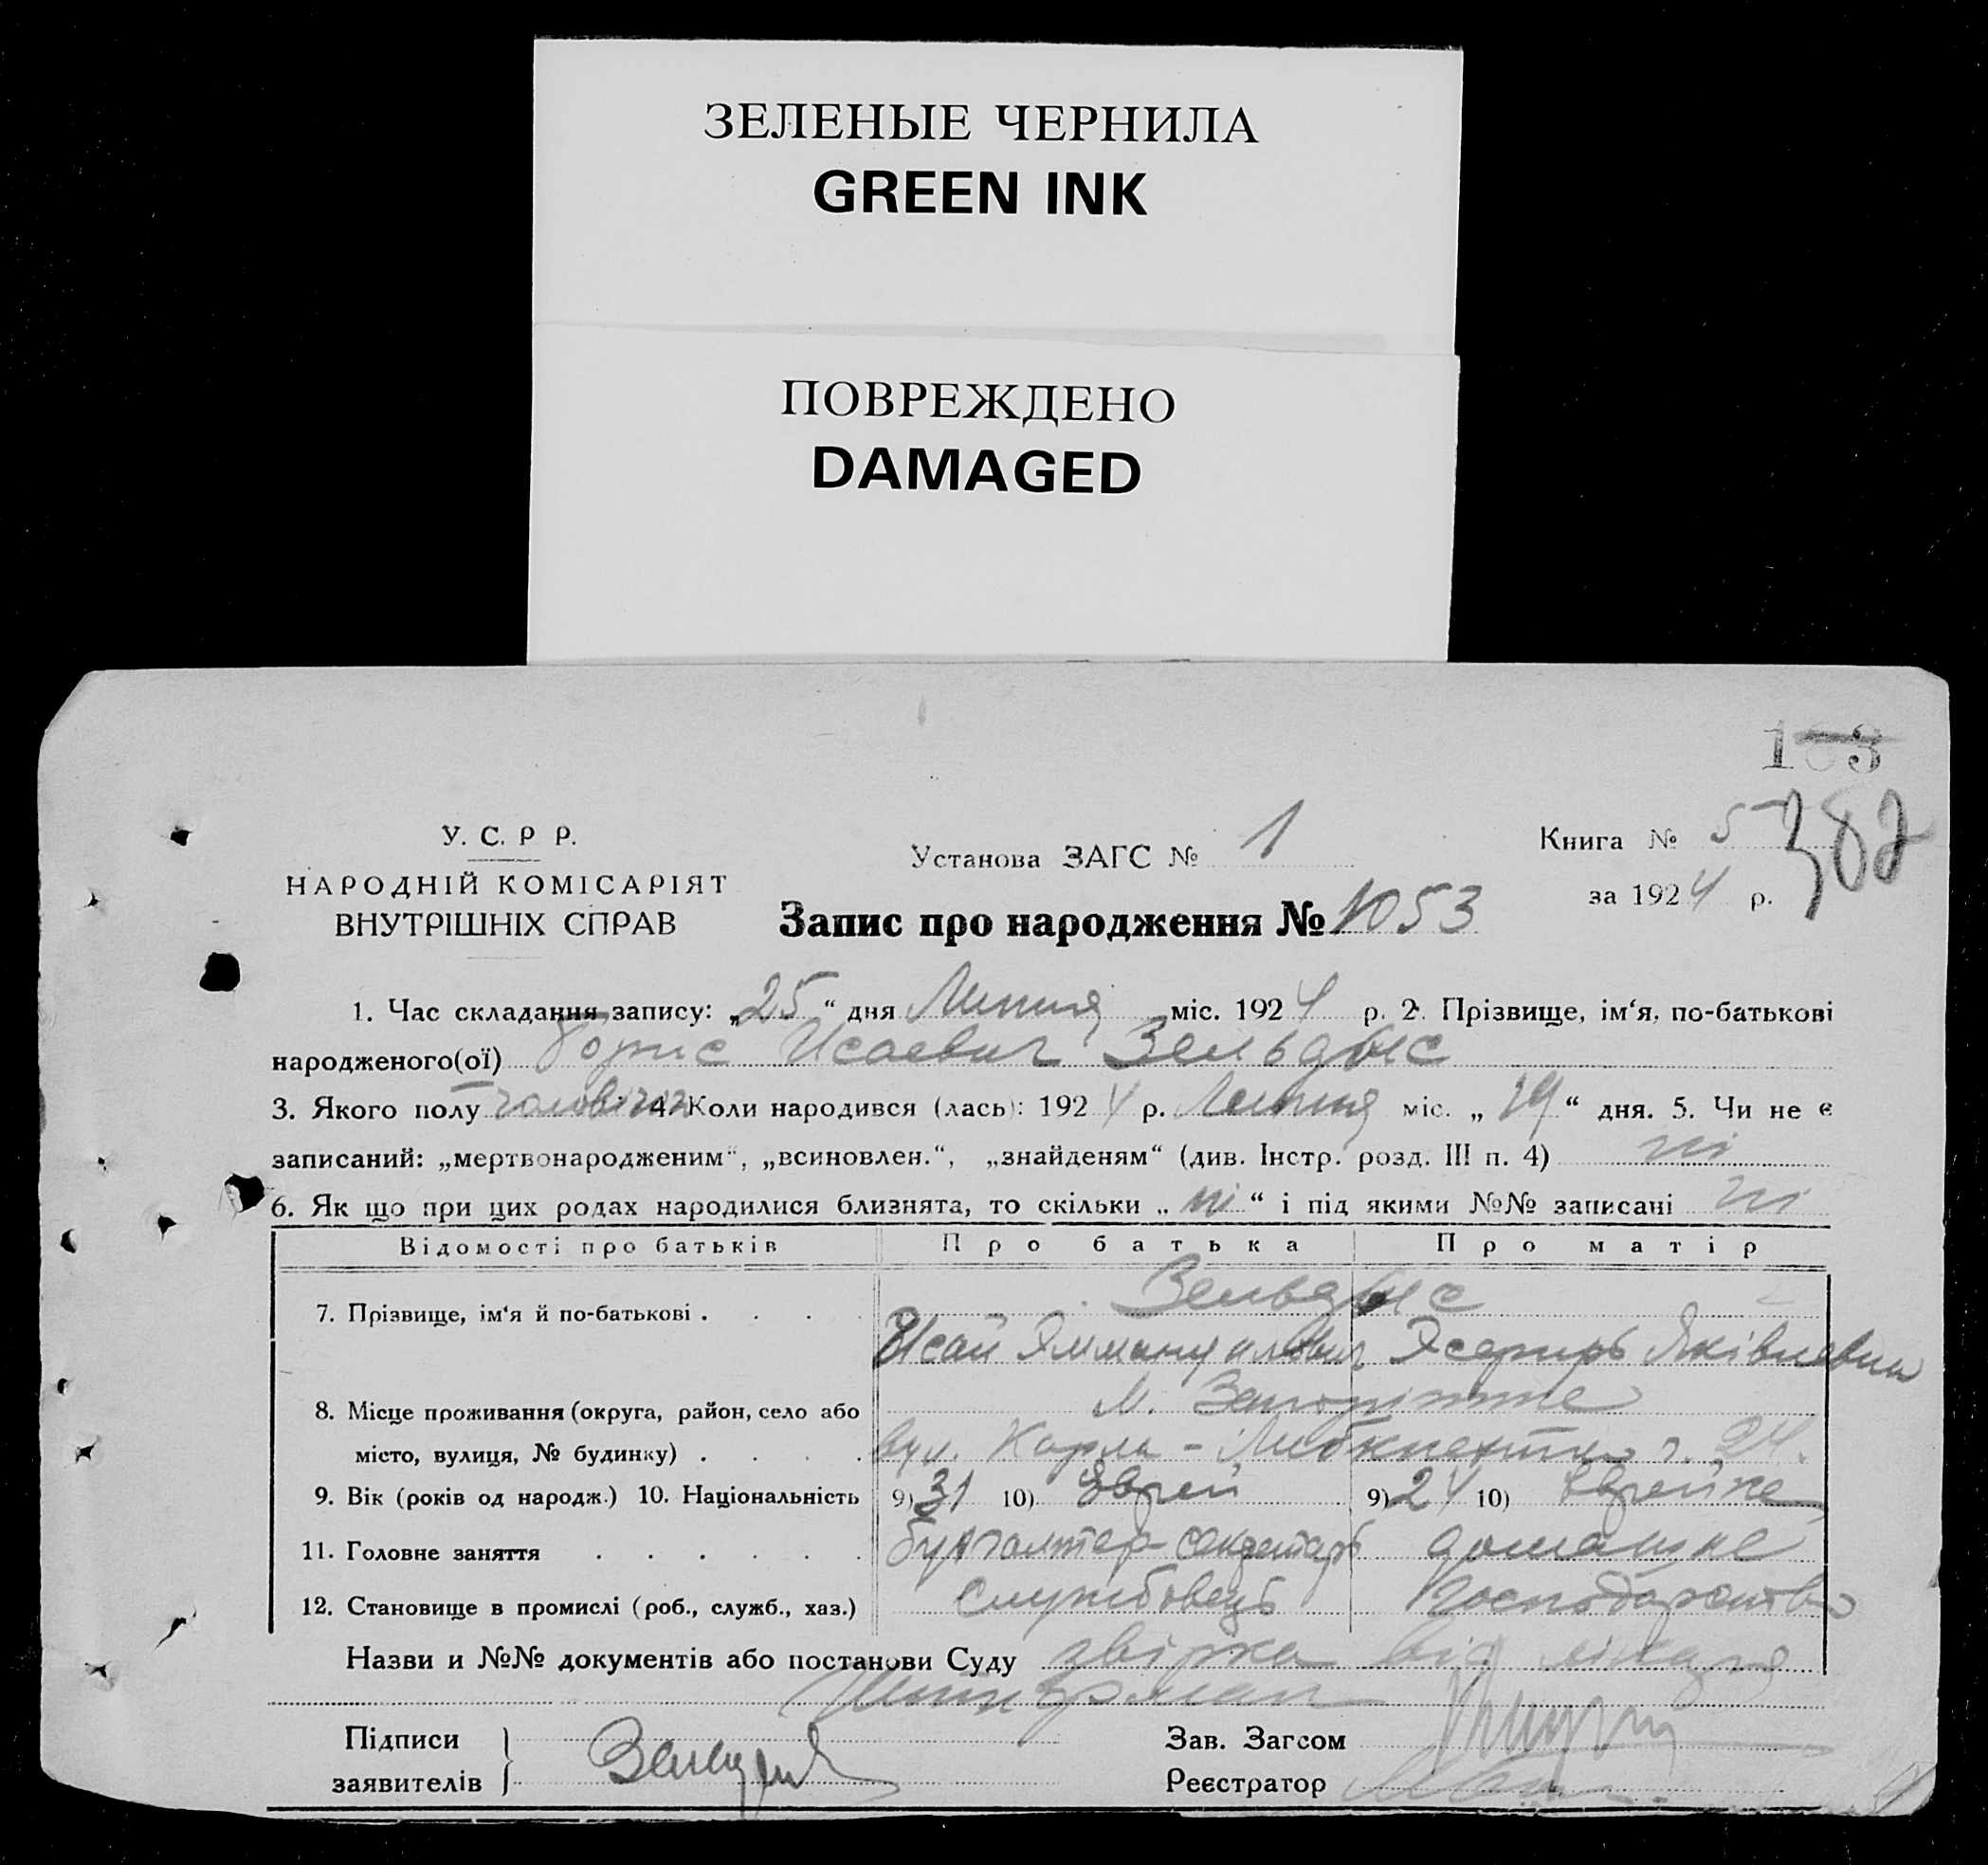 ЗЕЛЕНЫЕ ЧЕРНИЛА
GREEN INK
ПОВРЕЖДЕНО
DAMAGED
382
У. С. Р Р.
НАРОДНІЙ КОМІСАРІЯТ
ВНУТРІШНІХ СПРАВ
Установа ЗАГС № 1
Книга № 5
за 1924 р.
Запис про народження № 1053
1. Час складання запису: „25“ дня Липня міс. 1924 р. 2. Прізвище, ім‘я, по-батькові
народженого(ої) Борис Исаевич
3. Якого полу 4. Коли народився (лась): 1924 р. Липня міс. „19“ дня. 5. Чи не є
записаний: „мертвонародженим“, „всиновлен.“, „знайденям“ (див. Інстр. розд. III п. 4) ні
6. Як що при цих родах народилися близнята, то скільки „ні“ і під якими №№ записані ні
Відомості про батьків Про батька Про матір
7. Прізвище, ім‘я й по-батькові
Исай
8. Місце проживання (округа, район, село або м. Запоріжже
місто, вулиця, № будинку) вул. Карла - 24.
9. Вік (років од народж.) 10. Національність 9) 31 10) Єврей 9) 24 10) Єврейка
11. Головне заняття бухгалтер-секретарь домашне
12. Становище в промислі (роб., служб., хаз.) Службовець господарство
Назви и №№ документів або постанови Суду від лікаря
Підписи Зав. Загсом
заявителів Реєстратор